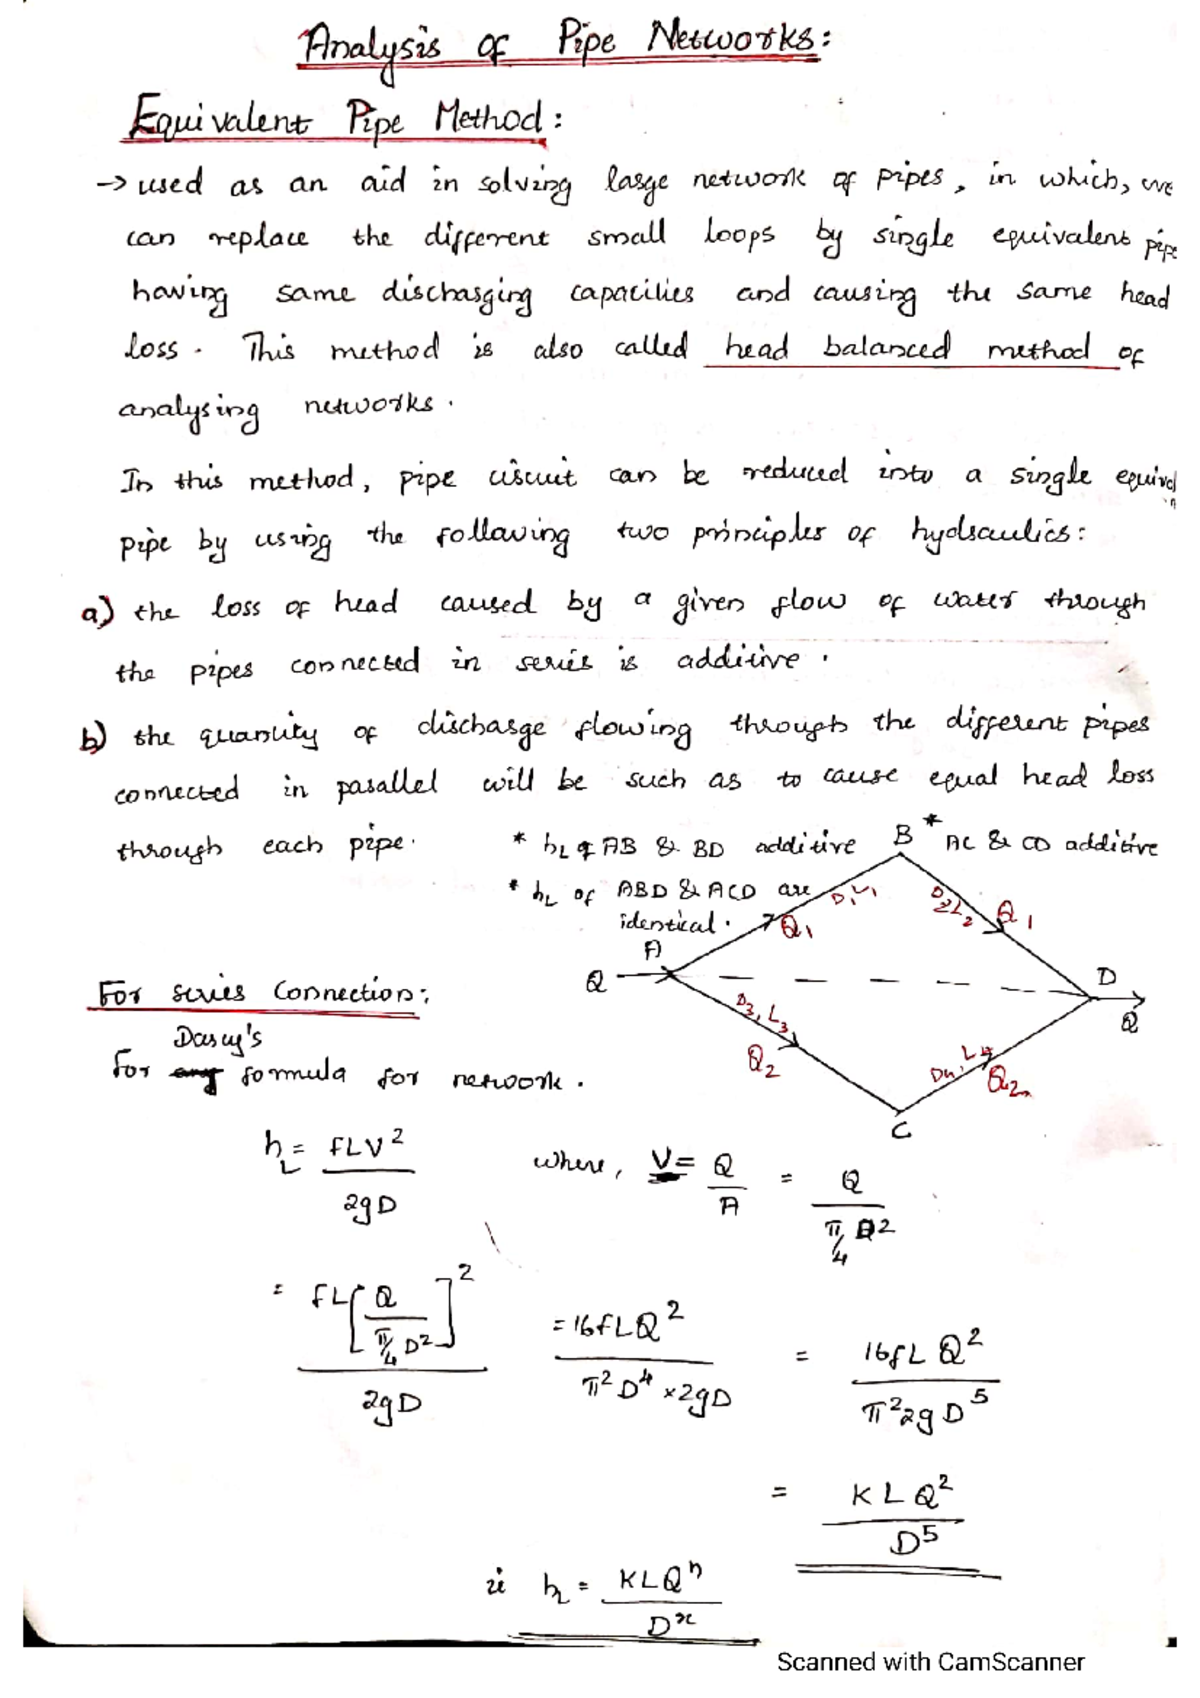 Analysis of Pipe Networks:
Equivalent Pipe Method:
→ used as an aid in solving large network of pipes, in which, we
can replace the different small loops by single equivalent pipe
having same discharging capacities and causing the same head
loss. This method is also called head balanced method of
analysing networks.
In this method, pipe circuit can be reduced into a single equival
pipe by using the following two principles of hydraulics:
a) the loss of head caused by a given flow of water through
the pipes connected in series is additive.
b) the quantity of discharge flowing through the different pipes
connected in parallel will be such as to cause equal head loss
through each pipe.
* hL of AB & BD additive
B
* AC & CD additive
* hL of ABD & ACD are
identical.
D1 L1
D2 L2
Q1
Q1
A
Q
D
Q
D3, L3
Q2
D4, L4
Q2
C
For series Connection:
Darcy's
For any formula for network.
hL = fLV²/2gD
where, V = Q/A = Q/(π/4 D²)
= fL[Q/(π/4 D²)]²/2gD = 16fLQ²/π²D⁴×2gD = 16fLQ²/π²2gD⁵
= KLQ²/D⁵
ie hL = KLQⁿ/Dˣ
Scanned with CamScanner